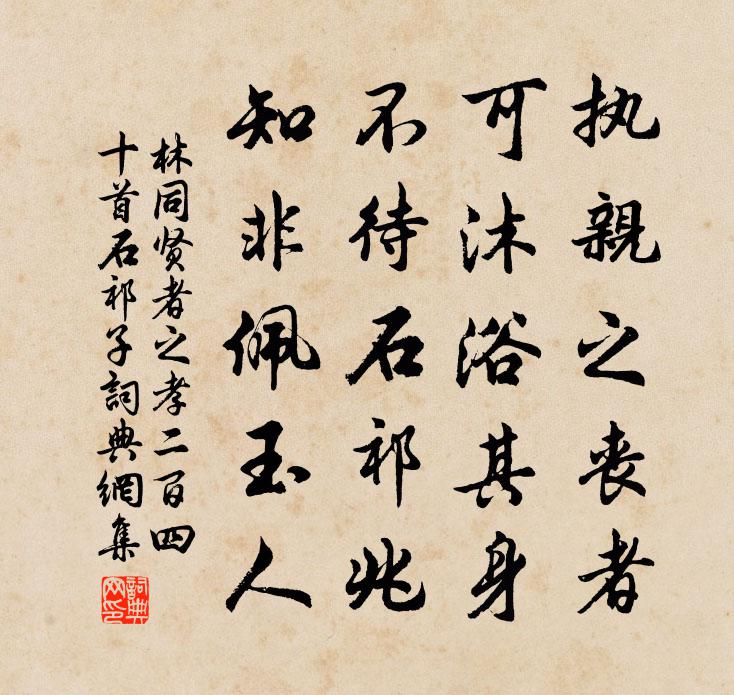 执親之丧者
可沐浴其身
不待石祁兆
知非佩玉人
林同贤者之孝二百四
十首石祁子詞典網集
詞典
网印